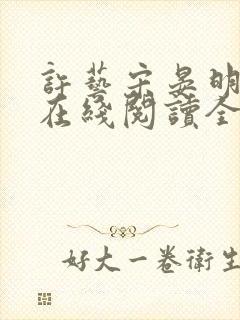 許藝宋晏明
在綫閱讀全
好大一卷衛生